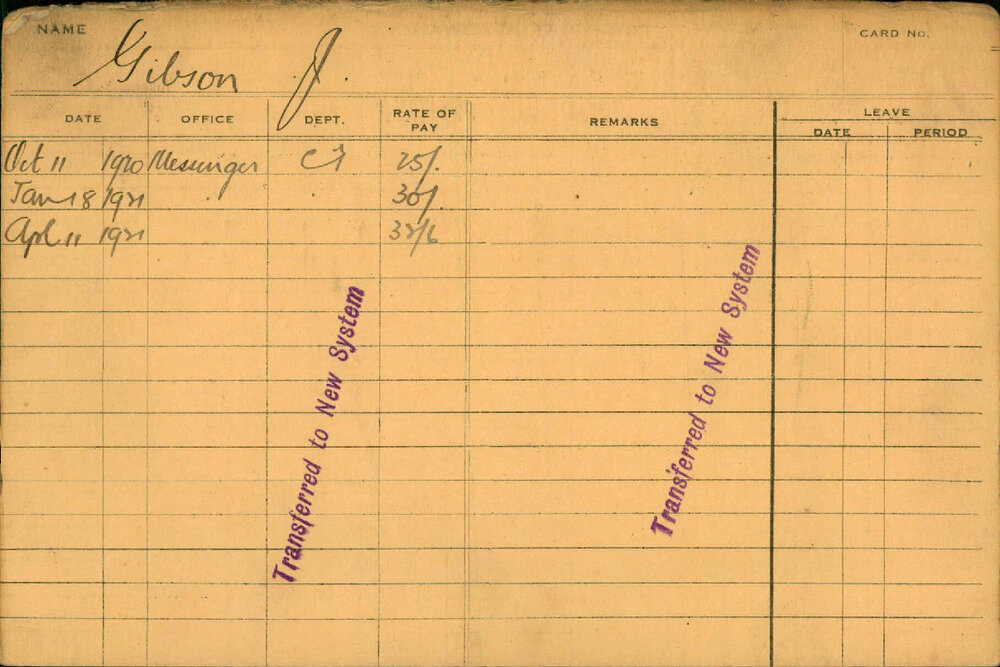 NAME
Gibson J.
CARD No.
DATE OFFICE DEPT. RATE OF PAY REMARKS LEAVE
DATE PERIOD
Oct 11 1920 Messenger 25/.
Jan 18 1921 . . 30/.
Apl 11 1921
Transferred to New System
Transferred to New System